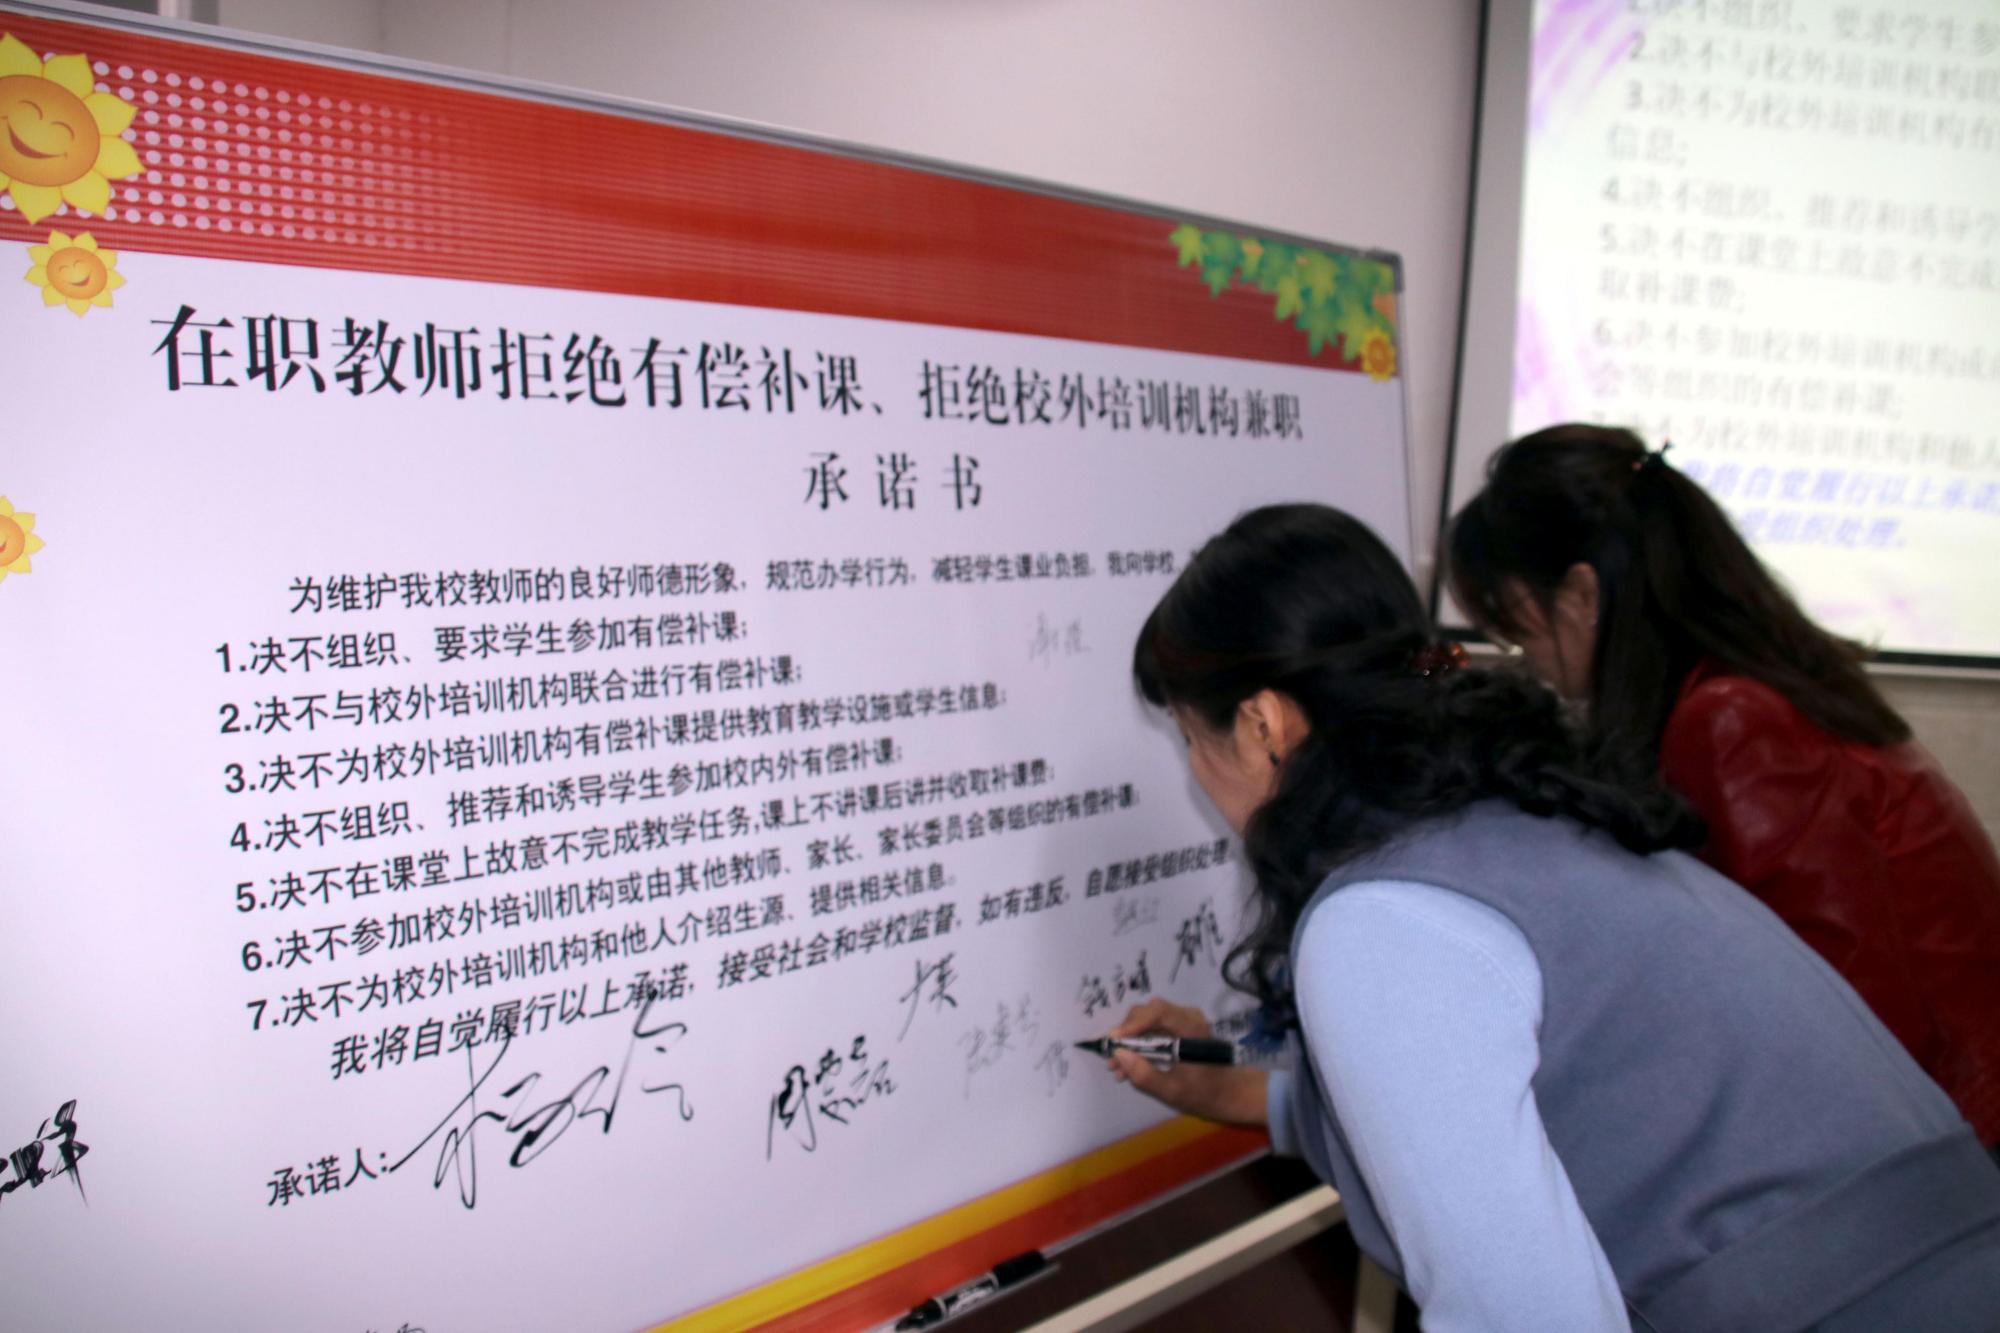 在职教师拒绝有偿补课、拒绝校外培训机构兼职
承诺书
为维护我校教师的良好师德形象，规范办学行为，减轻学生课业负担，我向学校、
1.决不组织、要求学生参加有偿补课；
2.决不与校外培训机构联合进行有偿补课；
3.决不为校外培训机构有偿补课提供教育教学设施或学生信息；
4.决不组织、推荐和诱导学生参加校内外有偿补课；
5.决不在课堂上故意不完成教学任务,课上不讲课后讲并收取补课费；
6.决不参加校外培训机构或由其他教师、家长、家长委员会等组织的有偿补课；
7.决不为校外培训机构和他人介绍生源、提供相关信息。
我将自觉履行以上承诺，接受社会和学校监督，如有违反，自愿接受组织处理。
承诺人：
2.决不与校外培训机构联
3.决不为校外培训机构有
信息；
4.决不组织、推荐和诱导学
5.决不在课堂上故意不完成
取补课费；
6.决不参加校外培训机构或
会等组织的有偿补课；
决不为校外培训机构和他人
我将自觉履行以上承诺
受组织处理。